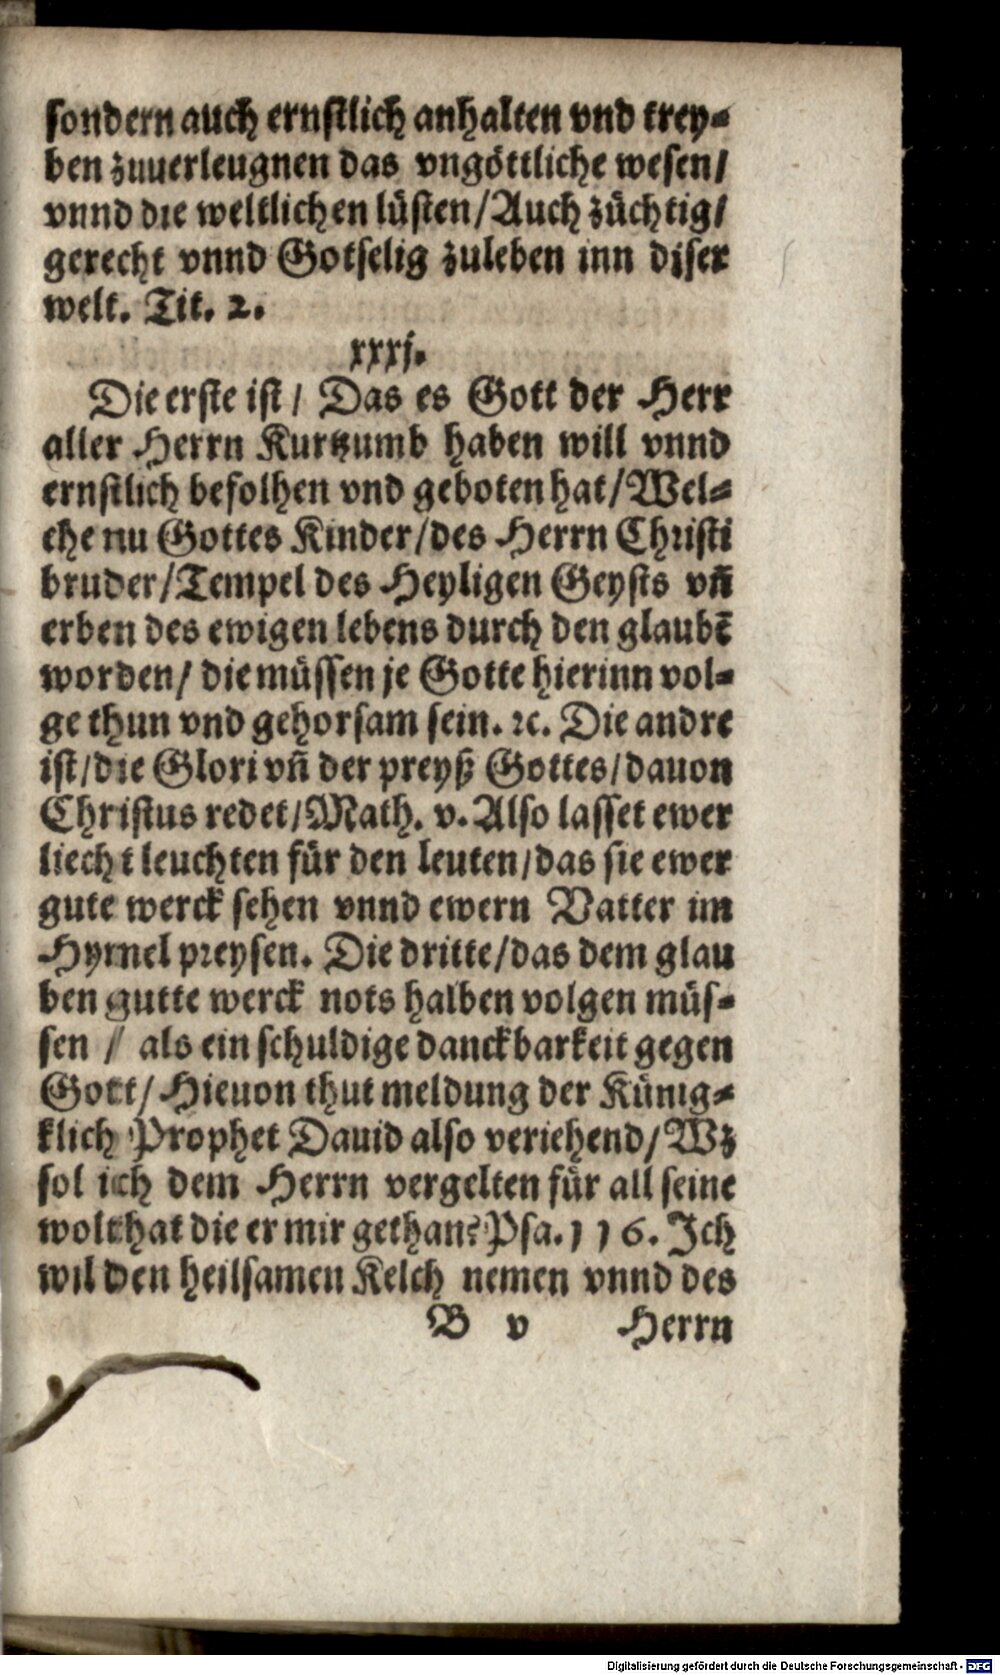 sondern auch ernstlich anhalten vnd trey-
ben zuuerleugnen das vngöttliche wesen/
vnnd die weltlichen lüsten/Auch züchtig/
gerecht vnnd Gotselig zuleben inn diser
welt. Tit. 2.
xxxj.
Die erste ist/ Das es Gott der Herr
aller Herrn Kurtzumb haben will vnnd
ernstlich befolhen vnd geboten hat/Wel-
che nu Gottes Kinder/des Herrn Christi
bruder/Tempel des Heyligen Geysts vñ
erben des ewigen lebens durch den glaubē
worden/ die müssen je Gotte hierinn vol-
ge thun vnd gehorsam sein. ꝛc. Die andre
ist/die Glori vñ der preyß Gottes/dauon
Christus redet/Math. v. Also lasset ewer
liecht leuchten für den leuten/das sie ewer
gute werck sehen vnnd ewern Vatter im
Hymel preysen. Die dritte/das dem glau
ben gutte werck nots halben volgen müs-
sen / als ein schuldige danckbarkeit gegen
Gott/ Hieuon thut meldung der Künig-
klich Prophet Dauid also veriehend/Wz
sol ich dem Herrn vergelten für all seine
wolthat die er mir gethan? Psa. 116. Ich
wil den heilsamen Kelch nemen vnnd des
B v Herrn
Digitalisierung gefördert durch die Deutsche Forschungsgemeinschaft - DFG